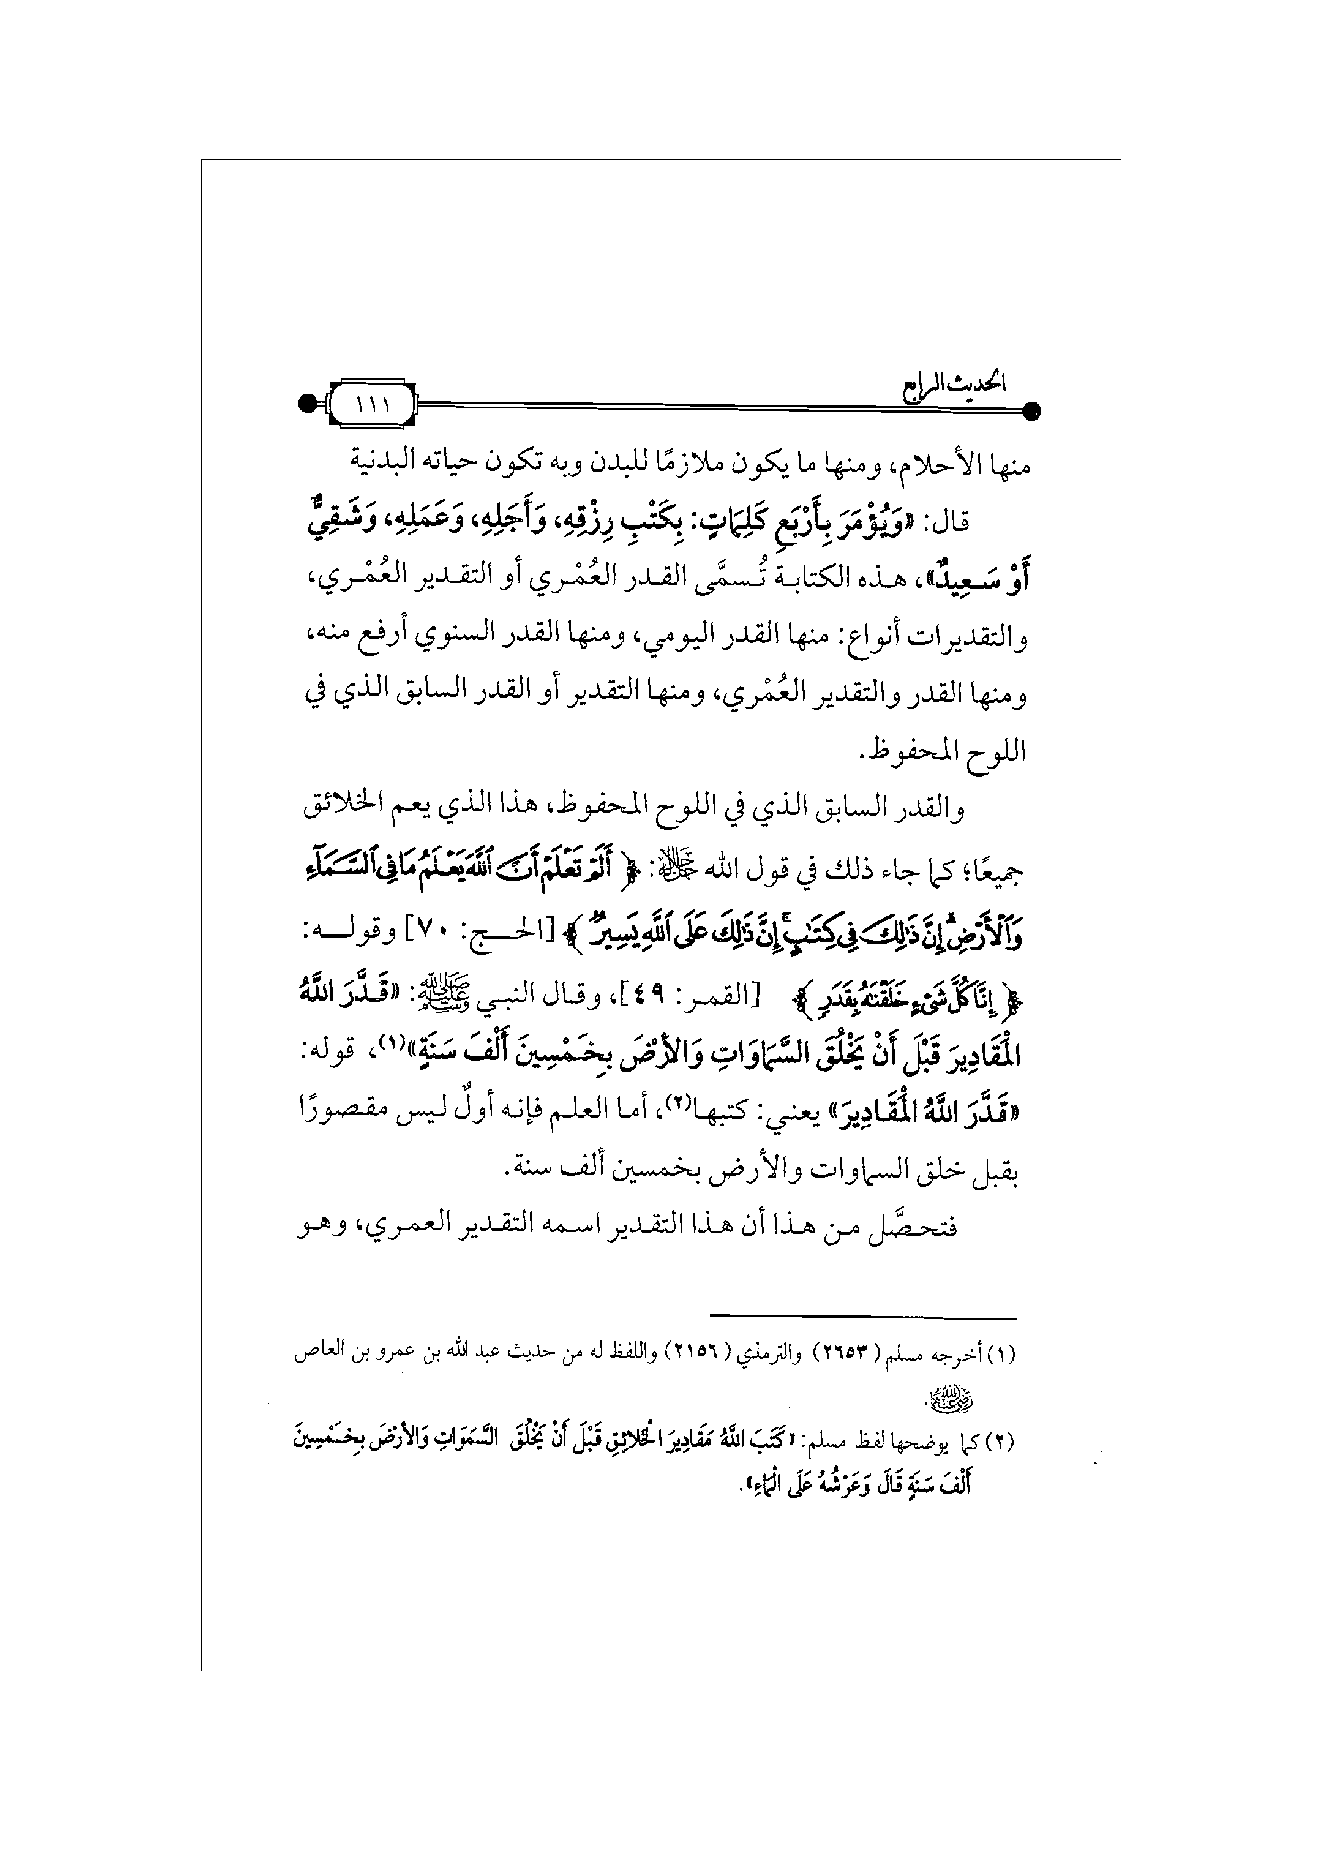 الحديث الرابع
١١١
منها الأحلام، ومنها ما يكون ملازمًا للبدن وبه تكون حياته البدنية
قال: «وَيُؤْمَرَ بِأَرْبَعِ كَلِمَاتٍ: بِكَتْبِ رِزْقِهِ، وَأَجَلِهِ، وَعَمَلِهِ، وَشَقِيٌّ
أَوْ سَعِيدٌ»، هذه الكتابة تُسمَّى القدر العُمْري أو التقدير العُمْري،
والتقديرات أنواع: منها القدر اليومي، ومنها القدر السنوي أرفع منه،
ومنها القدر والتقدير العُمْري، ومنها التقدير أو القدر السابق الذي في
اللوح المحفوظ.
والقدر السابق الذي في اللوح المحفوظ، هذا الذي يعم الخلائق
جميعًا؛ كما جاء ذلك في قول الله ﷻ: ﴿أَلَمْ تَعْلَمْ أَنَّ ٱللَّهَ يَعْلَمُ مَا فِى ٱلسَّمَآءِ
وَٱلْأَرْضِ ۗ إِنَّ ذَٰلِكَ فِى كِتَٰبٍ ۚ إِنَّ ذَٰلِكَ عَلَى ٱللَّهِ يَسِيرٌ﴾ [الحج: ٧٠] وقوله:
﴿إِنَّا كُلَّ شَىْءٍ خَلَقْنَٰهُ بِقَدَرٍ﴾ [القمر: ٤٩]، وقال النبي ﷺ: «قَدَّرَ اللَّهُ
الْمَقَادِيرَ قَبْلَ أَنْ يَخْلُقَ السَّمَاوَاتِ وَالأَرْضَ بِخَمْسِينَ أَلْفَ سَنَةٍ»(١)، قوله:
«قَدَّرَ اللَّهُ الْمَقَادِيرَ» يعني: كتبها(٢)، أما العلم فإنه أولٌ ليس مقصورًا
بقبل خلق السماوات والأرض بخمسين ألف سنة.
فتحصَّل من هذا أن هذا التقدير اسمه التقدير العمري، وهو
(١) أخرجه مسلم (٢٦٥٣) والترمذي (٢١٥٦) واللفظ له من حديث عبد الله بن عمرو بن العاص
رضي الله عنه.
(٢) كما يوضحها لفظ مسلم: «كَتَبَ اللَّهُ مَقَادِيرَ الْخَلَائِقِ قَبْلَ أَنْ يَخْلُقَ السَّمَوَاتِ وَالأَرْضَ بِخَمْسِينَ
أَلْفَ سَنَةٍ قَالَ وَعَرْشُهُ عَلَى الْمَاءِ».